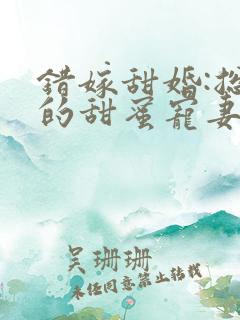 錯嫁甜婚:
的甜蜜寵妻
吴珊珊
未经同意禁止转载